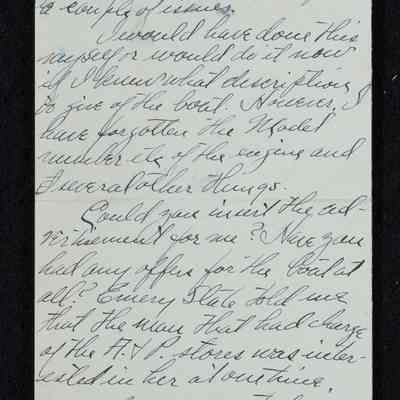 a couple of issues.
I would have done this
myself or would do it now
if I knew what description
to give of the boat. However, I
have forgotten the Model
number etc of the engine and
several other things.
Could you insert the ad-
vertisement for me? Have you
had any offers for the boat at
all? Emery Slate told me
that the man that had charge
of the A. & P. stores was inter-
ested in her at one time.